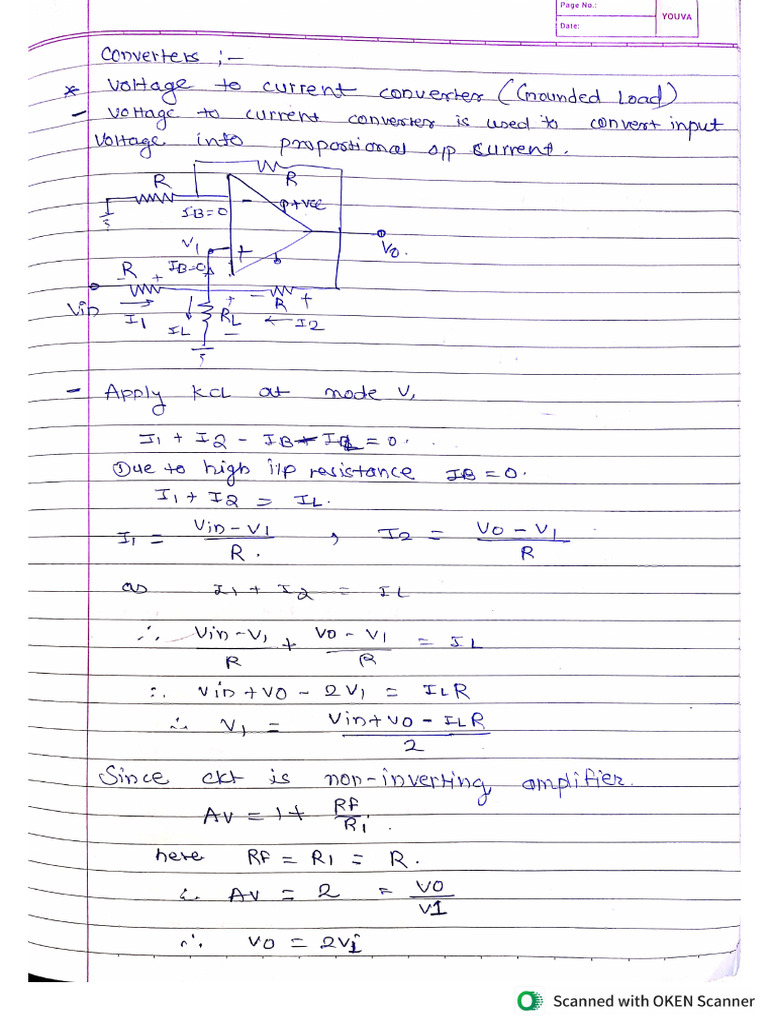 Page No.:
Date:
YOUVA
Converters :-
* Voltage to current converter (Grounded Load)
- Voltage to current converter is used to convert input
Voltage into proportional o/p current.
R
R
IB=0
- 
+VCC
V1
+
Vo.
R
IB=0
- +
Vin
I1
IL
+
RL
-
- +
R
I2
- Apply KCL at node V1
I1 + I2 - IB - IL = 0.
① Due to high i/p resistance IB = 0.
I1 + I2 = IL.
I1 = Vin - V1 / R. , I2 = VO - V1 / R
as I1 + I2 = IL
∴ Vin - V1 / R + VO - V1 / R = IL
∴ Vin + VO - 2V1 = ILR
∴ V1 = Vin + VO - ILR / 2
Since ckt is non-inverting amplifier.
AV = 1 + RF / Ri.
here RF = R1 = R.
∴ AV = 2 = VO / V1
∴ VO = 2V1
Scanned with OKEN Scanner